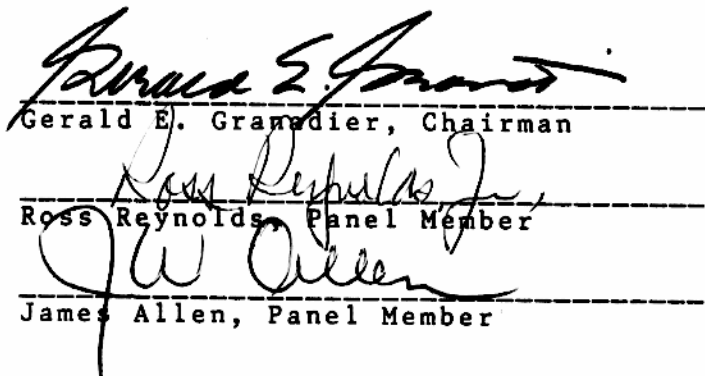 Gerald E. Granadier
Gerald E. Granadier, Chairman
Ross Reynolds, Jr,
Ross Reynolds, Panel Member
JW Allen
James Allen, Panel Member